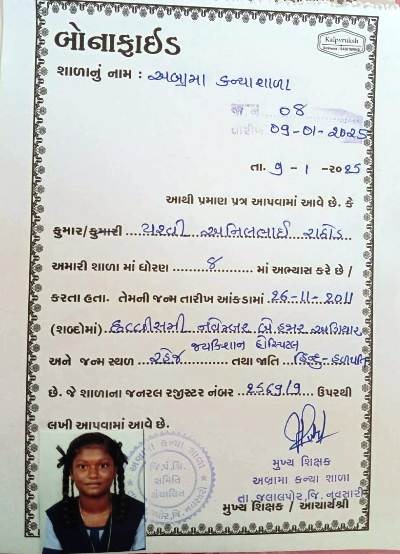 બોનાફાઈડ
Kalpvruksh
શાળાનું નામ : અબ્રામા કન્યાશાળા
જા.નં. 08
તારીખ 09-01-2025
તા. 9 - 1 -૨૦૨5
આથી પ્રમાણ પત્ર આપવામાં આવે છે. કે
કુમાર/કુમારી ... યશ્વી અનિલભાઈ રાઠોડ
અમારી શાળા માં ધોરણ ... 8 ... માં અભ્યાસ કરે છે /
કરતા હતા. તેમની જન્મ તારીખ આંકડામાં 26-11-2011
(શબ્દોમાં) છવ્વીસમી નવેમ્બર બે હજાર અગિયાર
જયકિશાન હોસ્પિટલ
અને જન્મ સ્થળ ... તથા જાતિ હિન્દુ-હળપતિ
છે. જે શાળાના જનરલ રજીસ્ટર નંબર 2569/9 ઉપરથી
લખી આપવામાં આવે છે.
અબ્રામા કન્યા શાળા
જિ.પં.શિ.
સમિતિ
સંચાલિત
મુખ્ય શિક્ષક
અબ્રામા કન્યા શાળા
તા. જલાલપોર, જિ. નવસારી
મુખ્ય શિક્ષક / આચાર્યશ્રી